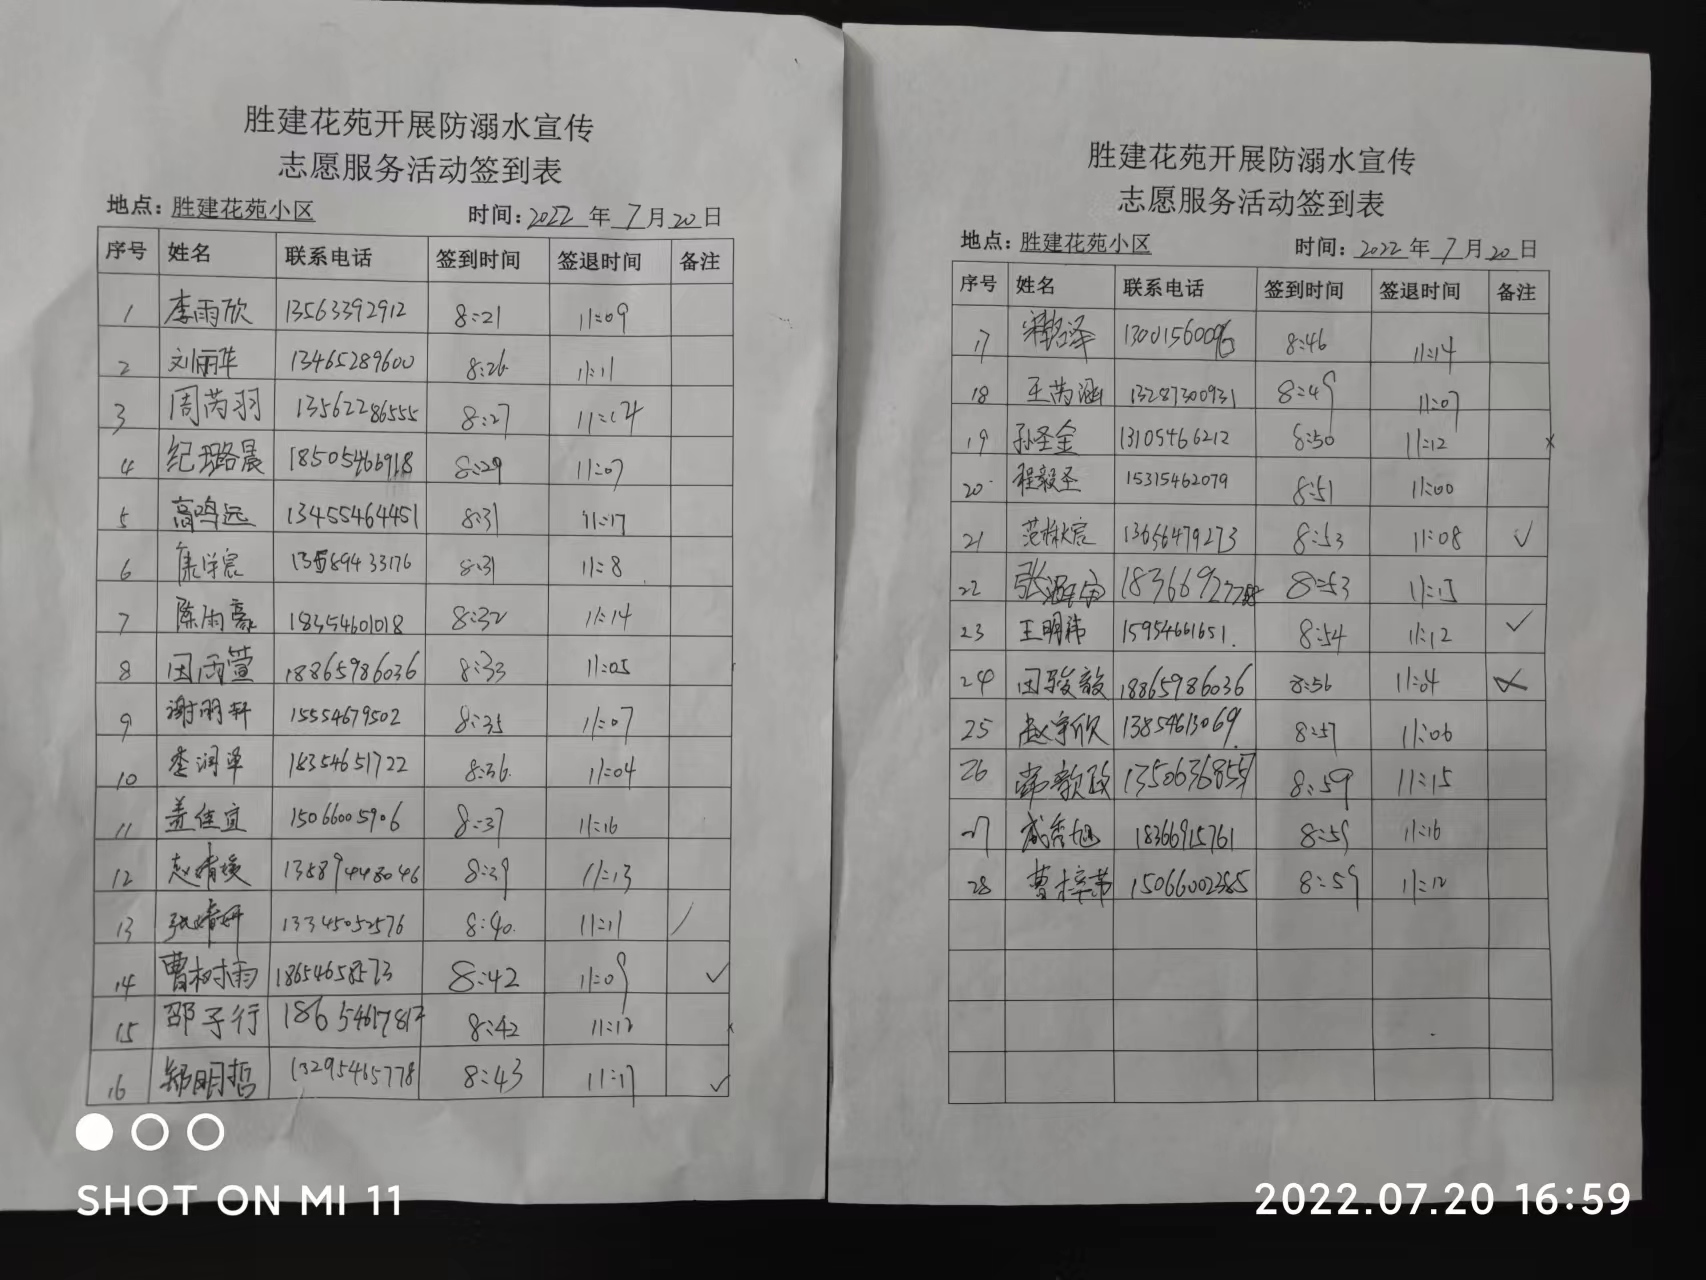 胜建花苑开展防溺水宣传
志愿服务活动签到表
地点：胜建花苑小区 时间：2022年7月20日
序号 姓名 联系电话 签到时间 签退时间 备注
1 李雨欣 13563392912 8:21 11:09
2 刘丽华 13465289600 8:26 11:11
3 周芮羽 13562286555 8:27 11:14
4 纪璐晨 18505466918 8:29 11:07
5 高鸣远 13455464451 8:31 11:17
6 8:31 11:8
7 陈雨豪 18354601018 8:32 11:14
8 田雨萱 18865986036 8:33 11:05
9 谢明轩 15554679502 8:35 11:07
10 李润泽 18354651722 8:36 11:04
11 盖佳宜 15066005906 8:37 11:16
12 赵婧瑛 13589448046 8:39 11:13
13 张婧妍 13345052576 8:40 11:11 /
14 曹树雨 18654658573 8:42 11:09 ✓
15 邵子行 18654617817 8:42 11:12
16 郑明哲 13295465778 8:43 11:17 ✓
胜建花苑开展防溺水宣传
志愿服务活动签到表
地点：胜建花苑小区 时间：2022年7月20日
序号 姓名 联系电话 签到时间 签退时间 备注
17 8:46 11:14
18 王芮涵 13287300931 8:49 11:07
19 孙圣金 13105466212 8:50 11:12
20 程毅圣 15315462079 8:51 11:00
21 13656479273 8:53 11:08 ✓
22 8:53 11:15
23 王明祎 15954661651 8:54 11:12 ✓
24 田骏毅 18865986036 8:56 11:04
25 赵宇欣 13854613069 8:57 11:06
26 8:59 11:15
27 18366915761 8:59 11:16
28 曹梓芾 15066002385 8:59 11:12
SHOT ON MI 11
2022.07.20 16:59